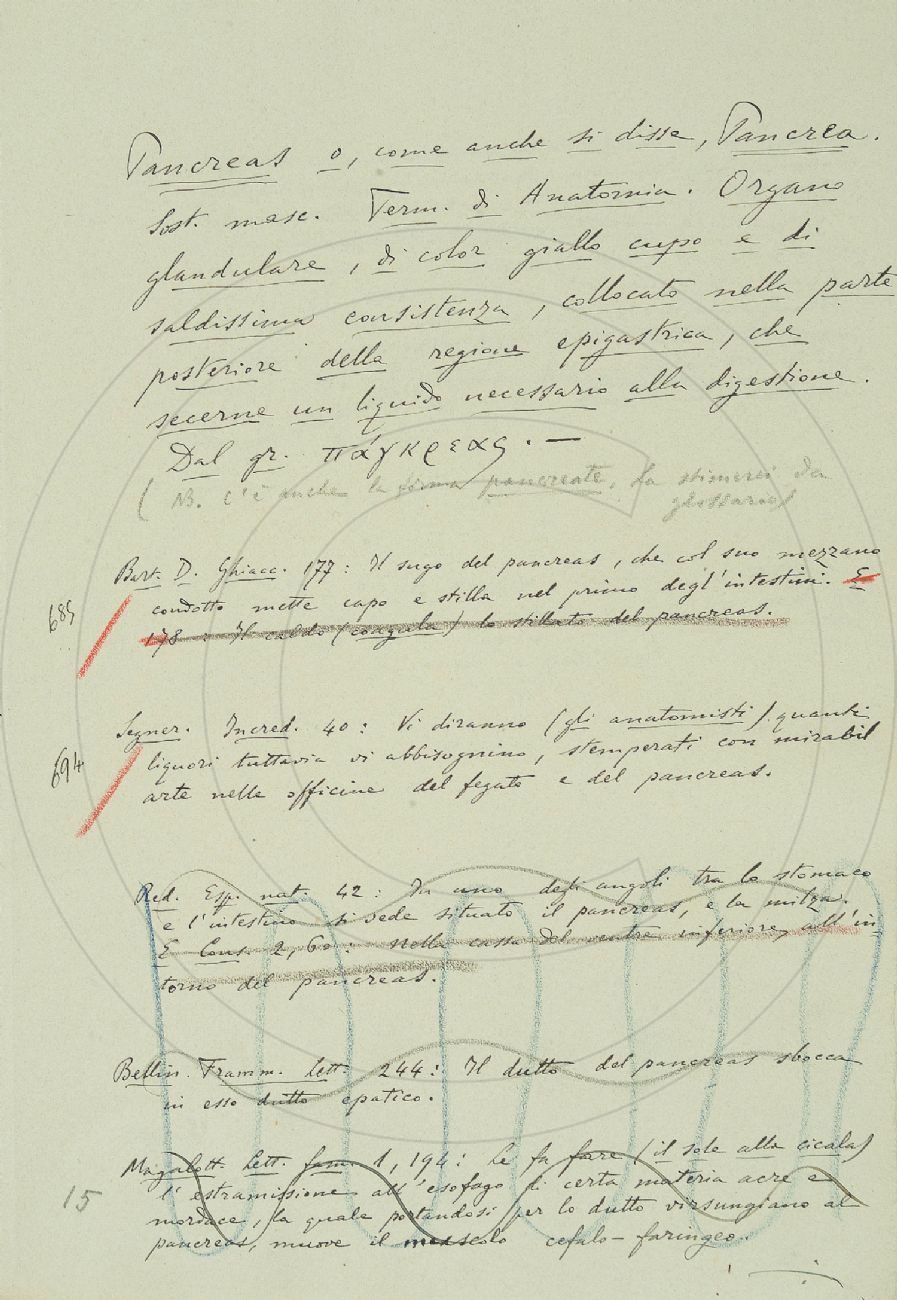 Pancreas o, come anche si disse, Pancrea.
Sost. masc. Term. di Anatomia. Organo
glandulare, di color giallo cupo e di
saldissima consistenza, collocato nella parte
posteriore della regione epigastrica, che
secerne un liquido necessario alla digestione.
Dal gr. πάγκρεας. —
(NB. C'è anche la forma pancreate, la stimerei da
glossario)
Bart. D. Ghiacc. 177: Il sugo del pancreas, che col suo mezzano
685
condotto mette capo e stilla nel primo degl'intestini. E
178: Il caldo (coagula) lo stillato del pancreas.
Segner. Incred. 40: Vi diranno (gli anatomisti) quanti
694
liquori tuttavia vi abbisognino, stemperati con mirabil
arte nelle officine del fegato e del pancreas.
Red. Esp. nat. 42: In uno degli angoli tra lo stomaco
e l'intestino si vede situato il pancreas, e la milza.
E Cons. 2, 60: nella cassa del ventre inferiore, all'in
torno del pancreas.
Bellin. Framm. Lett. 244: Il dutto del pancreas sbocca
in esso dutto epatico.
Magalott. Lett. fam. 1, 194: Le fa fare (il sole alla cicala)
15
l'estramissione all'esofago di certa materia acre e
mordace, la quale portandosi per lo dutto virsungiano al
pancreas, muove il muscolo cefalo-faringeo.